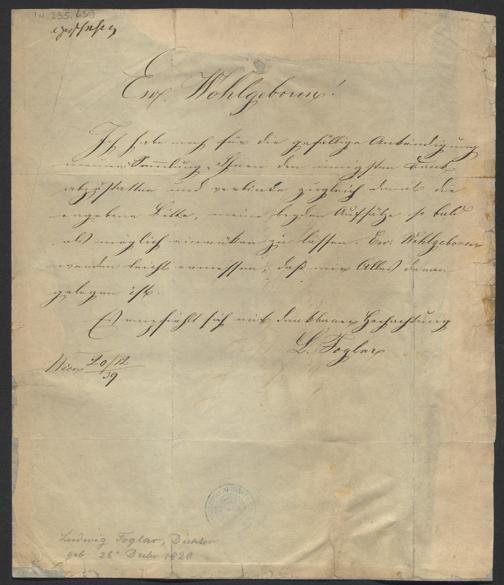 I.N. 235.650
Ew. Wohlgeboren!
Ich habe noch für die gefällige Ankündigung
meiner Sammlung Ihnen den innigsten Dank
abzustatten und verbinde zugleich damit die
ergebene Bitte, meine beyden Aufsätze so bald
als möglich einrücken zu lassen. Ew. Wohlgeboren
werden leicht ermessen, daß mir Alles daran
gelegen ist.
Es empfiehlt sich mit dankbarer Hochachtung
L. Foglar
Wien 20/12
39
Ludwig Foglar, Dichter
geb. 25t Dezbr 1820